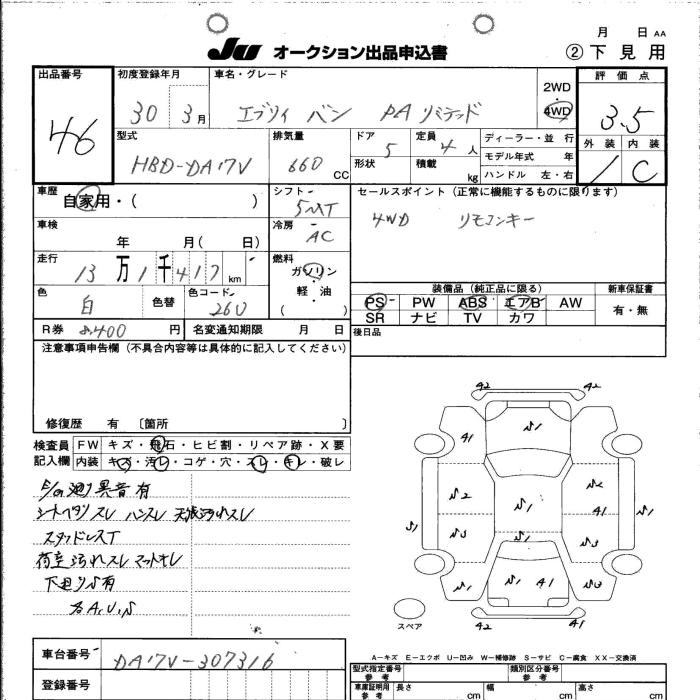 月 日 AA
JU オークション出品申込書 ② 下見用
出品番号 46
初度登録年月 30 3月
車名・グレード エブリイ バン PA リミテッド
2WD
4WD
評価点 3.5
外装 内装 C
型式 HBD-DA17V
排気量 660 CC
ドア 5
形状
定員 4 人
積載 kg
ディーラー・並行
モデル年式 年
ハンドル 左・右
車歴 自家用・( )
シフト 5MT
セールスポイント (正常に機能するものに限ります)
4WD リモコンキー
車検 年 月( 日)
冷房 AC
走行 13万1千417 km
燃料 ガソリン・軽・油 ( )
色 白 色替 色コード 26U
装備品 (純正品に限る) 新車保証書
PS PW ABS エアB AW 有・無
SR ナビ TV カワ
R券 8,400 円 名変通知期限 月 日
後日品
注意事項申告欄 (不具合内容等は具体的に記入してください)
修復歴 有 〔箇所 〕
検査員記入欄
FW キズ・飛石・ヒビ割・リペア跡・X要
内装 キズ・汚レ・コゲ・穴・スレ・キレ・破レ
異音有
シートヘタリスレ ハンスレ 天張汚れスレ
スタッドレスT
荷室汚れスレ マットキレ
下廻りS有
各A,U,S
42 42
41 S1
S2 41
S1 S3 S1 S1 S1
S1 S1 41 S3
42 41
スペア
A-キズ E-エクボ U-凹み W-補修跡 S-サビ C-腐食 XX-交換済
車台番号 DA17V-307316
登録番号
型式指定番号 参考
類別区分番号 参考
車庫証明用 参考 長さ cm 幅 cm 高さ cm